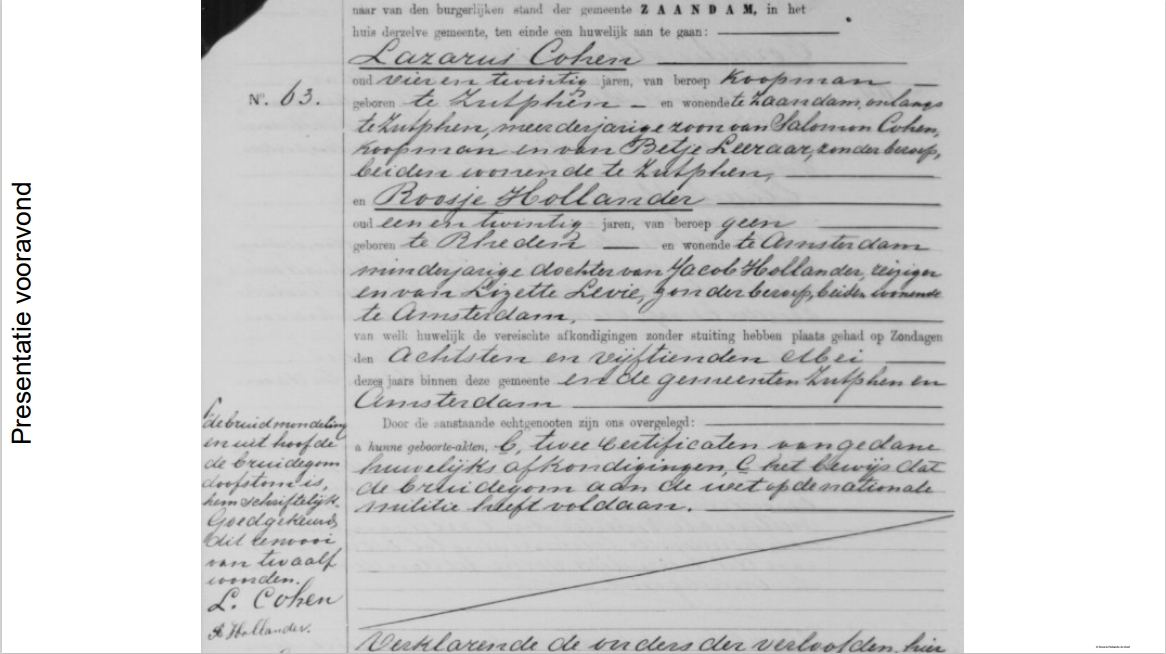 Presentatie vooravond
naar van den burgerlijken stand der gemeente ZAANDAM, in het
huis derzelve gemeente, ten einde een huwelijk aan te gaan:
Lazarus Cohen
oud vier en twintig jaren, van beroep Koopman
No. 63.
geboren te Zutphen en wonende te Zaandam, onlangs
te Zutphen, meerderjarige zoon van Salomon Cohen,
koopman en van Betje Leeraar, zonder beroep,
beiden wonende te Zutphen,
en Roosje Hollander
oud een en twintig jaren, van beroep geen
geboren te Rheden en wonende te Amsterdam
minderjarige dochter van Jacob Hollander, reiziger
en van Lizette Levie, zonder beroep, beiden wonende
te Amsterdam,
van welk huwelijk de vereischte afkondigingen zonder stuiting hebben plaats gehad op Zondagen
den Achtsten en vijftienden Mei
dezes jaars binnen deze gemeente en de gemeenten Zutphen en
Amsterdam
Door de aanstaande echtgenooten zijn ons overgelegd:
a hunne geboorte-akten, b, twee certificaten van gedane
huwelijks afkondigingen, c het bewijs dat
de bruidegom aan de wet op de nationale
militie heeft voldaan.
de bruid mondeling
en uit hoofde
de bruidegom
doofstom is,
hem schriftelijk.
Goedgekeurd
dit renvooi
van twaalf
woorden.
L. Cohen
R Hollander.
Verklarende de ouders der verloofden, hier